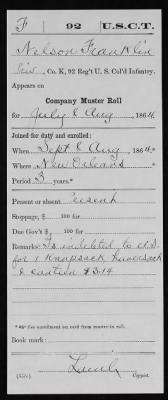 F 92 U.S.C.T.
Nelson Franklin
Priv., Co. K, 92 Reg't U. S. Col'd Infantry.
Appears on
Company Muster Roll
for July & Aug, 1864
Joined for duty and enrolled:
When Sept & Aug, 1864*
Where New Orleans
Period 3 years.*
Present or absent Present
Stoppage, $ 100 for
Due Gov't $ 100 for
Remarks: Is indebted to U.S.
for 1 Knapsack haversack
& canteen $3.14
*See enrollment on card from muster-in roll.
Book mark:
Copyist.